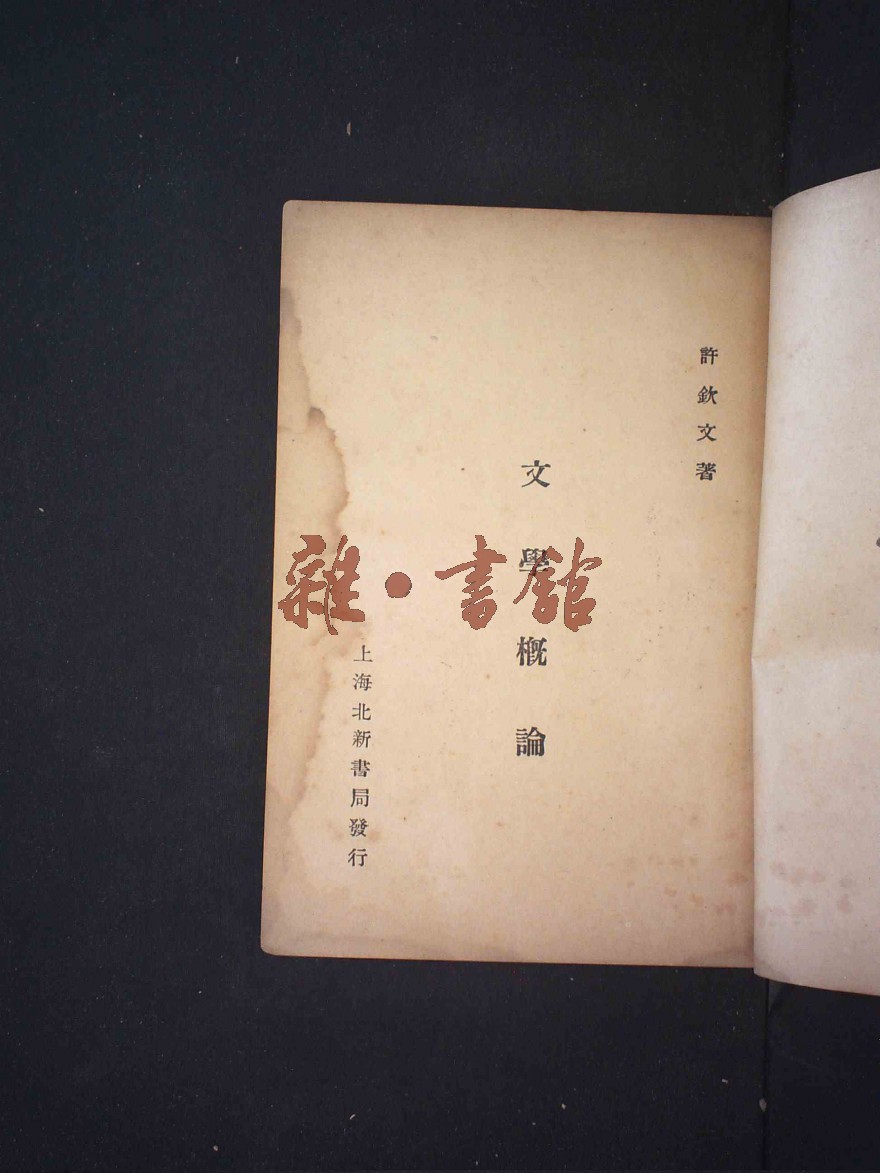 許欽文著
文學概論
上海北新書局發行
雜·書館